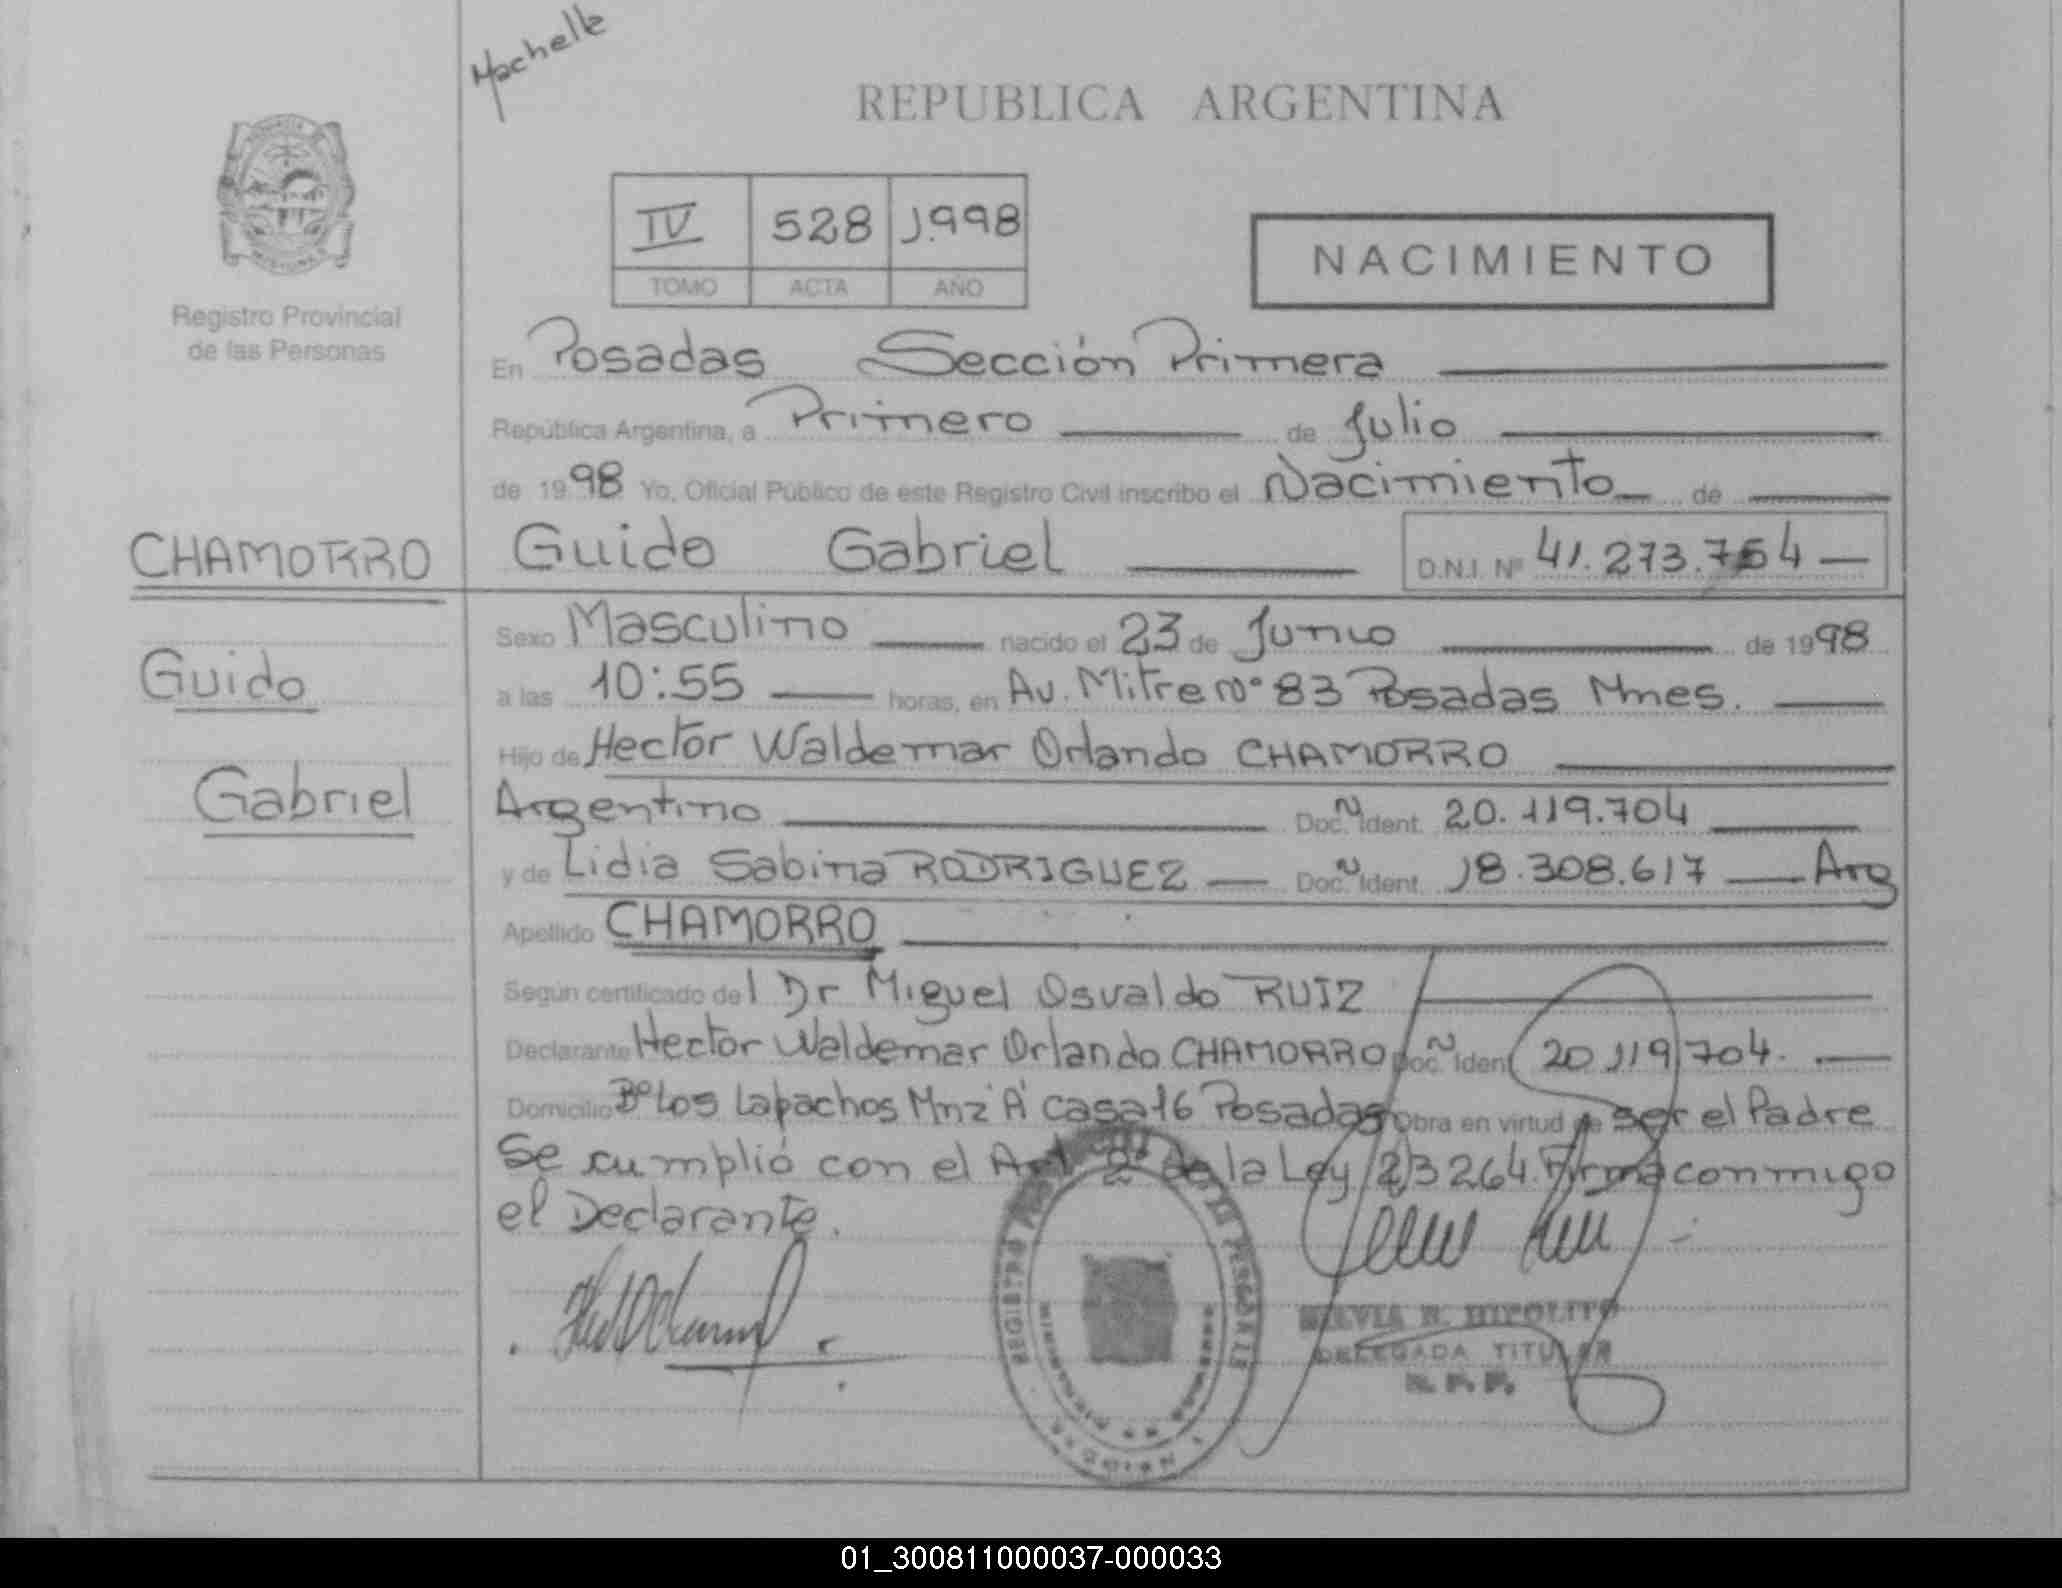 Machelle
REPUBLICA ARGENTINA
IV 528 1.998
TOMO ACTA AÑO
NACIMIENTO
Registro Provincial
de las Personas
En Posadas Sección Primera
República Argentina, a Primero de Julio
de 1998 Yo, Oficial Público de este Registro Civil inscribo el Nacimiento de
CHAMORRO
Guido Gabriel D.N.I. Nº 41.273.754
Guido
Gabriel
Sexo Masculino nacido el 23 de Junio de 1998
a las 10:55 horas, en Av. Mitre Nº 83 Posadas Mnes.
Hijo de Hector Waldemar Orlando CHAMORRO
Argentino Doc. Ident. 20.119.704
y de Lidia Sabina RODRIGUEZ Doc. Ident. 18.308.617 Arg
Apellido CHAMORRO
Según certificado del Dr Miguel Osvaldo RUIZ
Declarante Hector Waldemar Orlando CHAMORRO Doc. Ident 20.119.704.
Domicilio Bº Los Lapachos Mnz 'A' Casa 16 Posadas Obra en virtud de ser el Padre
Se cumplió con el Art. 2º de la Ley 23264. Firma conmigo
el Declarante.
SILVIA R. HIPOLITO
DELEGADA TITULAR
R. P. P.
REGISTRO DE LAS PERSONAS
MISIONES
01_300811000037-000033